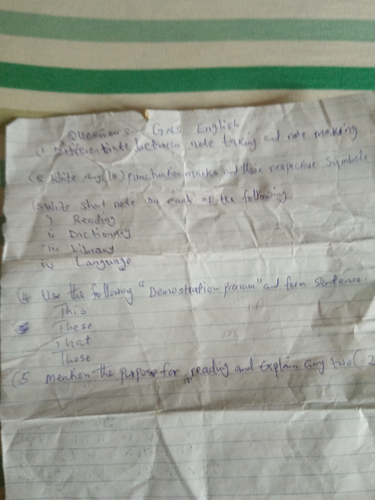 Questions GNS English
(1 Differentiate between note taking and note making
(2 Write any (10) punctuation marks and their respective symbols
(3 Write short note on each of the following
i) Reading
ii Dictionary
iii Library
iv Language
(4 Use the following "Demostration pronoun" and form sentence.
This
These
That
Those
(5 mention the purpose for reading and explain any two (2